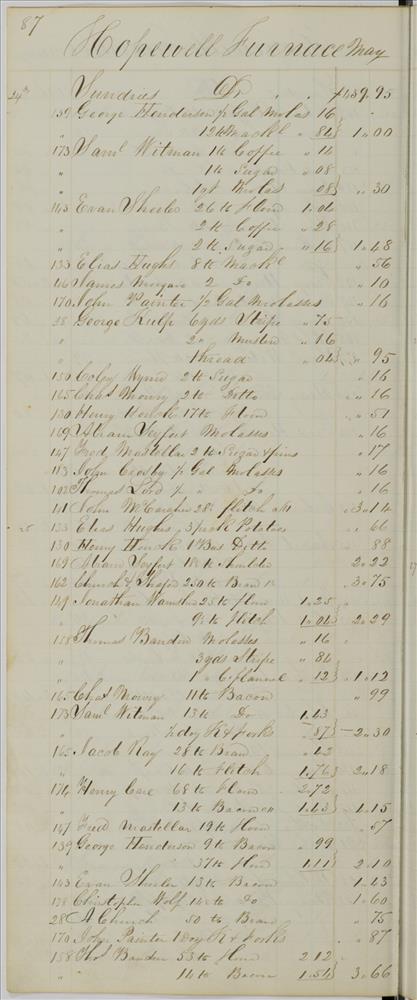 87
Hopewell Furnace May
24th Sundries Dr 439.95
139 George Henderson ½ Gal Molas 16
" 12 lb Mackl " 84 1 " 00
173 Saml Witman 1 lb Coffee " 14
" 1 lb Sugar " 08
" 1 qt Molas 08 " 30
143 Evan Sheeler 26 lb Flour 1.04
2 lb Coffee " 28
" 2 lb Sugar " 16 1 " 48
133 Elias Hughs 8 lb Mackl " 56
116 James Morgan 2 Do " 10
170 John Painter ½ Gal Molasses " 16
28 George Kulp 6 yds Stripe " 75
" 2 " Muslin " 16
" Thread " 04 " 95
150 2 lb Sugar " 16
165 Chas Mowry 2 lb Ditto " 16
130 Henry Houck 17 lb Flour " 51
169 Abram Seyfert Molasses " 16
147 Fred Mastellar 2 lb Sugar & pins " 17
113 John Crosby ½ Gal Molasses " 16
102 Thomas Lord ½ " Do " 16
141 John McCaraher 28 " flitch 3 " 14
25 133 Elias Hughs 3 pecks Potatoes " 66
130 Henry Houck 1 Bus Ditto 88
169 Abram Seyfert 18 lb Shoulder 2 " 22
162 Church & 250 lb Bran 3 " 75
149 Jonathan 25 lb flour 1.25
9 lb flitch 1.04 2 " 29
158 Thomas Bander Molasses " 16
" 3 yds Stripe " 84
" 1 " C flannel " 12 1 " 12
165 Chas Mowry 11 lb Bacon " 99
173 Saml Witman 13 lb Do 1.43
" ½ doz K & forks " 87 2 " 30
165 Jacob Ray 28 lb Bran " 42
" 16 lb flitch 1.76 2 " 18
174 Henry Care 68 lb Flour 2.72
13 lb Bacon 1.43 1.15
147 Fred Mastellar 19 lb flour " 57
139 George Henderson 9 lb Bacon " 99
" 37 lb flour 1.11 2.10
143 Evan Sheeler 13 lb Bacon 1.43
178 Christopher Wolf Do 1.60
28 A Church 50 lb Bran " 75
170 John Painter 1 Doz K & forks " 87
158 Thos Bander 53 lb flour 2.12
" 14 lb Bacon 1.54 3.66